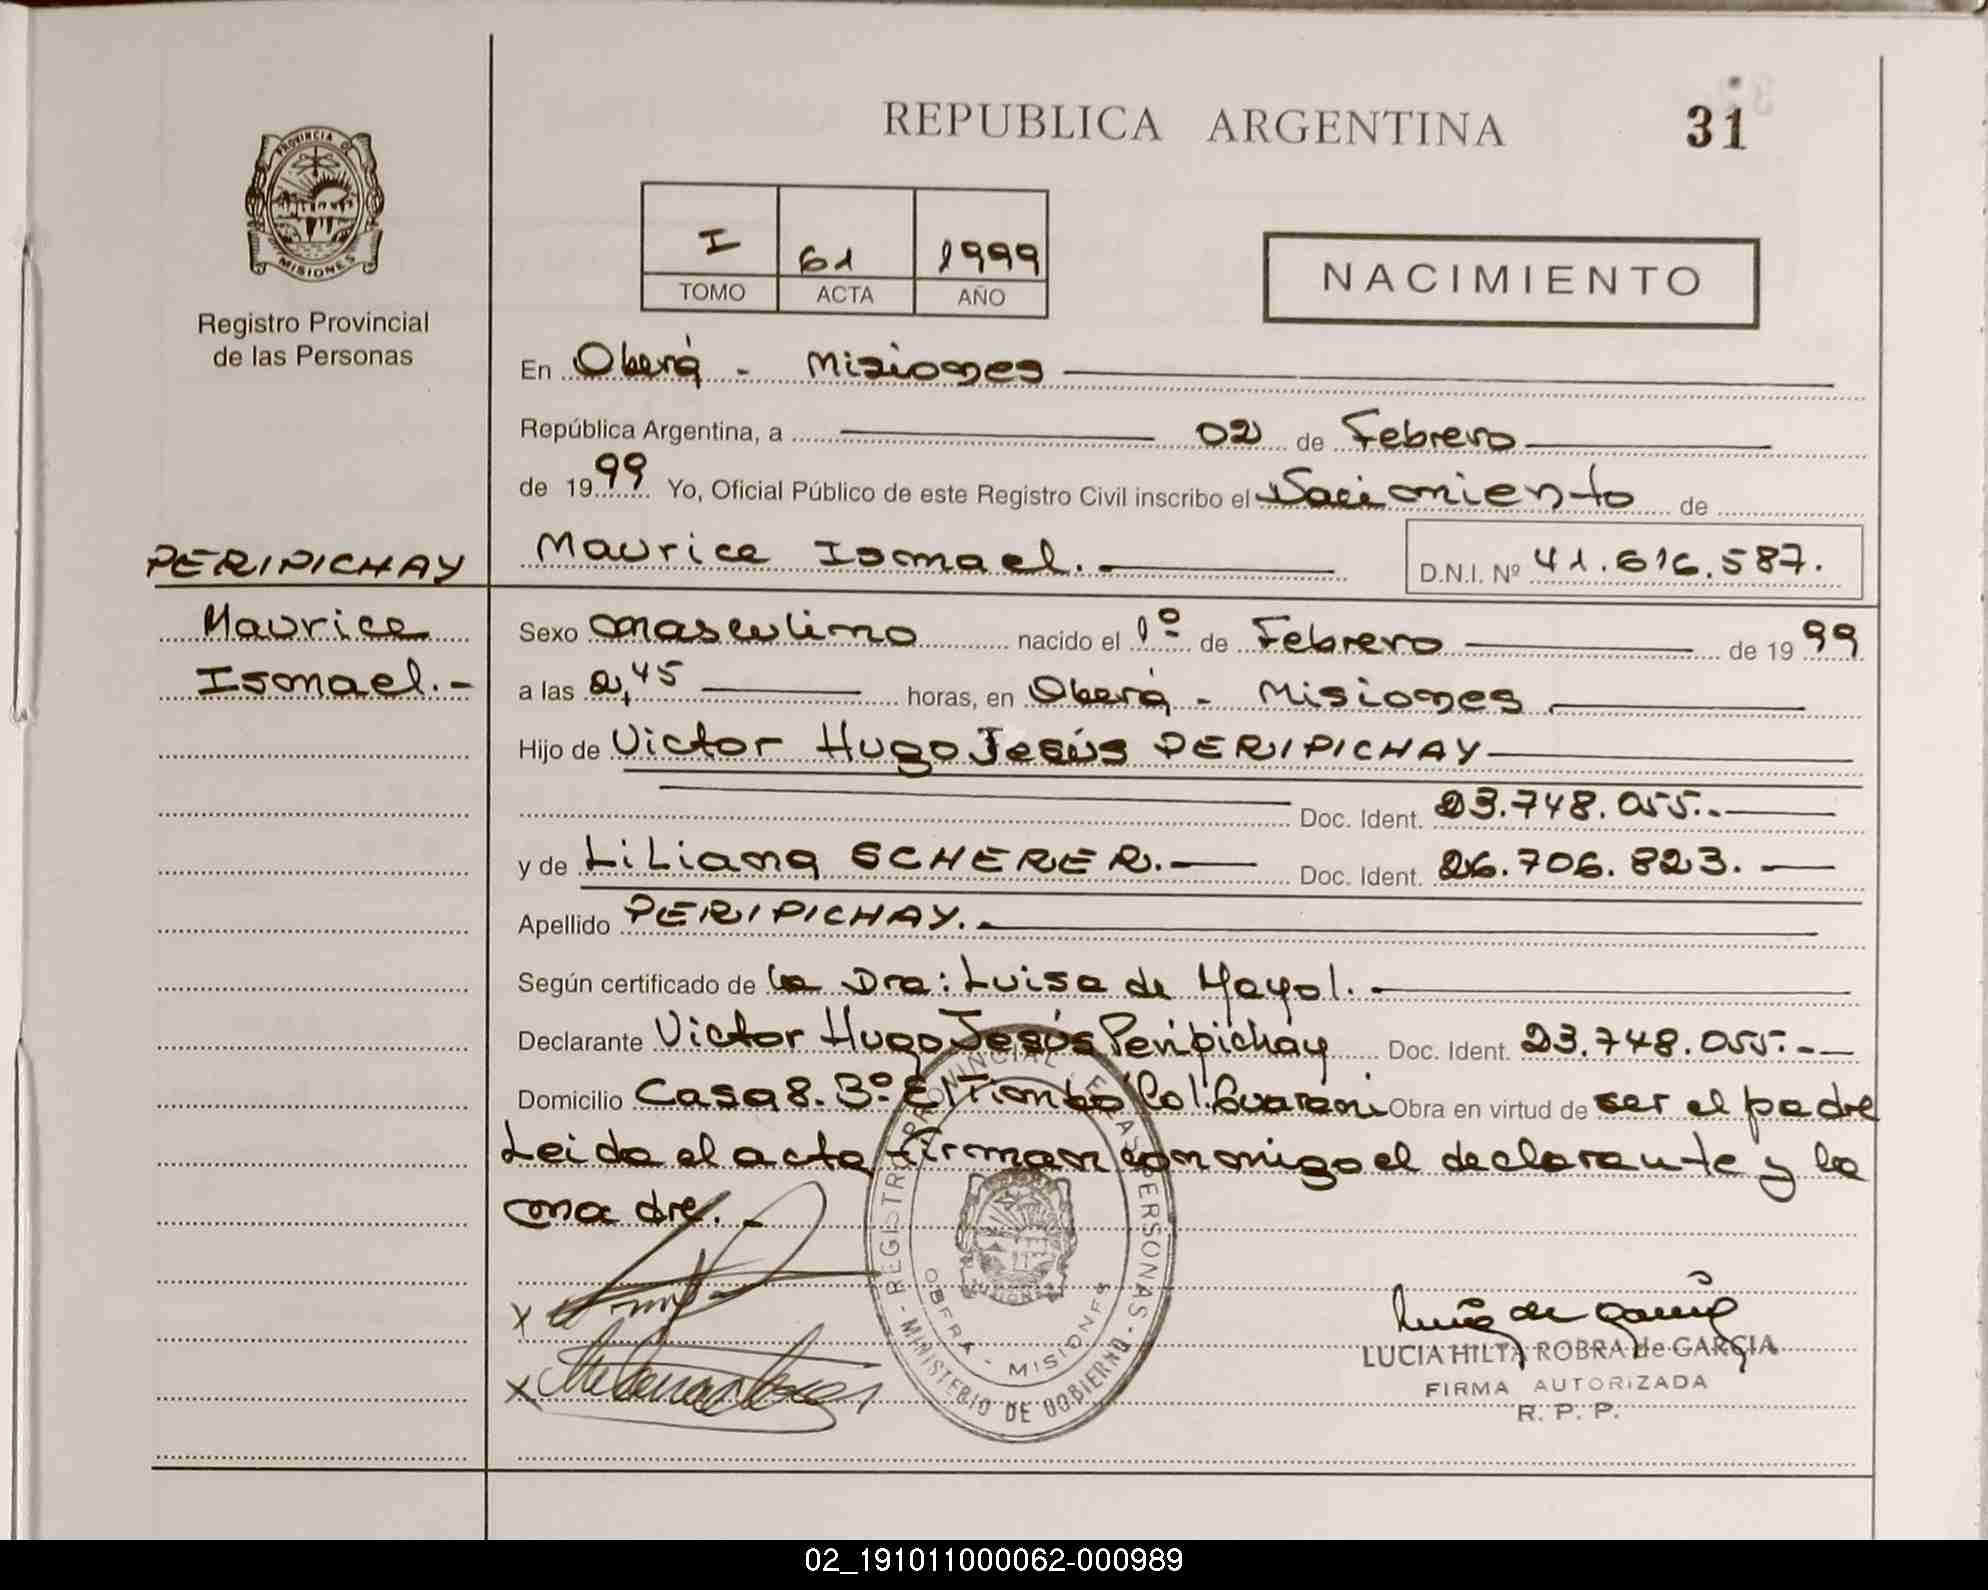 REPUBLICA ARGENTINA
31
PROVINCIA DE
MISIONES
Registro Provincial
de las Personas
I 61 1999
TOMO ACTA AÑO
NACIMIENTO
En Oberá - Misiones
República Argentina, a 02 de Febrero
de 1999 Yo, Oficial Público de este Registro Civil inscribo el Nacimiento de
Maurice Ismael.
D.N.I. Nº 41.616.587.
PERIPICHAY
Maurice
Ismael.-
Sexo masculino nacido el 1º de Febrero de 1999
a las 2,45 horas, en Oberá - Misiones
Hijo de Victor Hugo Jesús PERIPICHAY
Doc. Ident. 23.748.055.-
y de Liliana SCHERER. Doc. Ident. 26.706.823.
Apellido PERIPICHAY.
Según certificado de la Dra: Luisa de Mayol.
Declarante Victor Hugo Jesús Peripichay Doc. Ident. 23.748.055.-
Domicilio Casa 8. Bº. El Timbo Col. Guarani Obra en virtud de ser el padre
Leida el acta firman conmigo el declarante y la
madre.-
x
x
REGISTRO PROVINCIAL DE LAS PERSONAS - MINISTERIO DE GOBIERNO -
OBERA - MISIONES
LUCIA HILTA ROBRA de GARCIA
FIRMA AUTORIZADA
R. P. P.
02_191011000062-000989